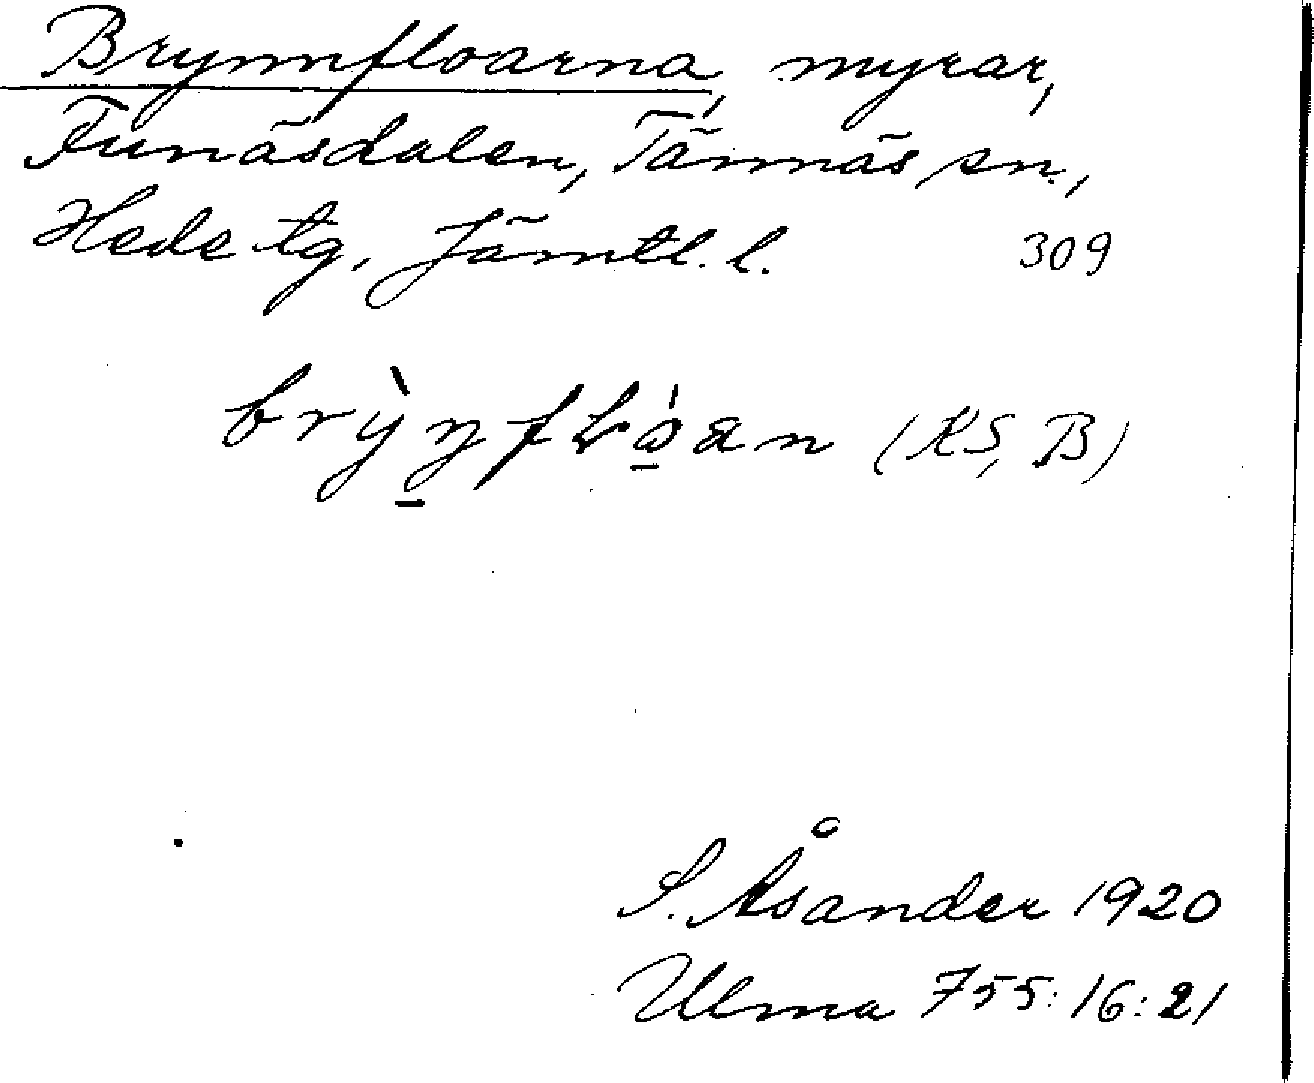 Brynnfloarna, myrar,
Funäsdalen, Tännäs sn.,
Hede tg, Jämtl. l. 309
(KS, B)
S. Åsander 1920
Ulma 755:16:21